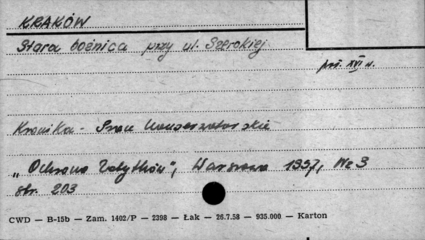 KRAKÓW
Stara bożnica przy ul. Szerokiej
poł. XVI w.
Kronika - Prace konserwatorskie
"Ochrona Zabytków", Warszawa 1957, Nr 3
str. 203
CWD — B-15b — Zam. 1402/P — 2398 — Łak — 26.7.58 — 935.000 — Karton